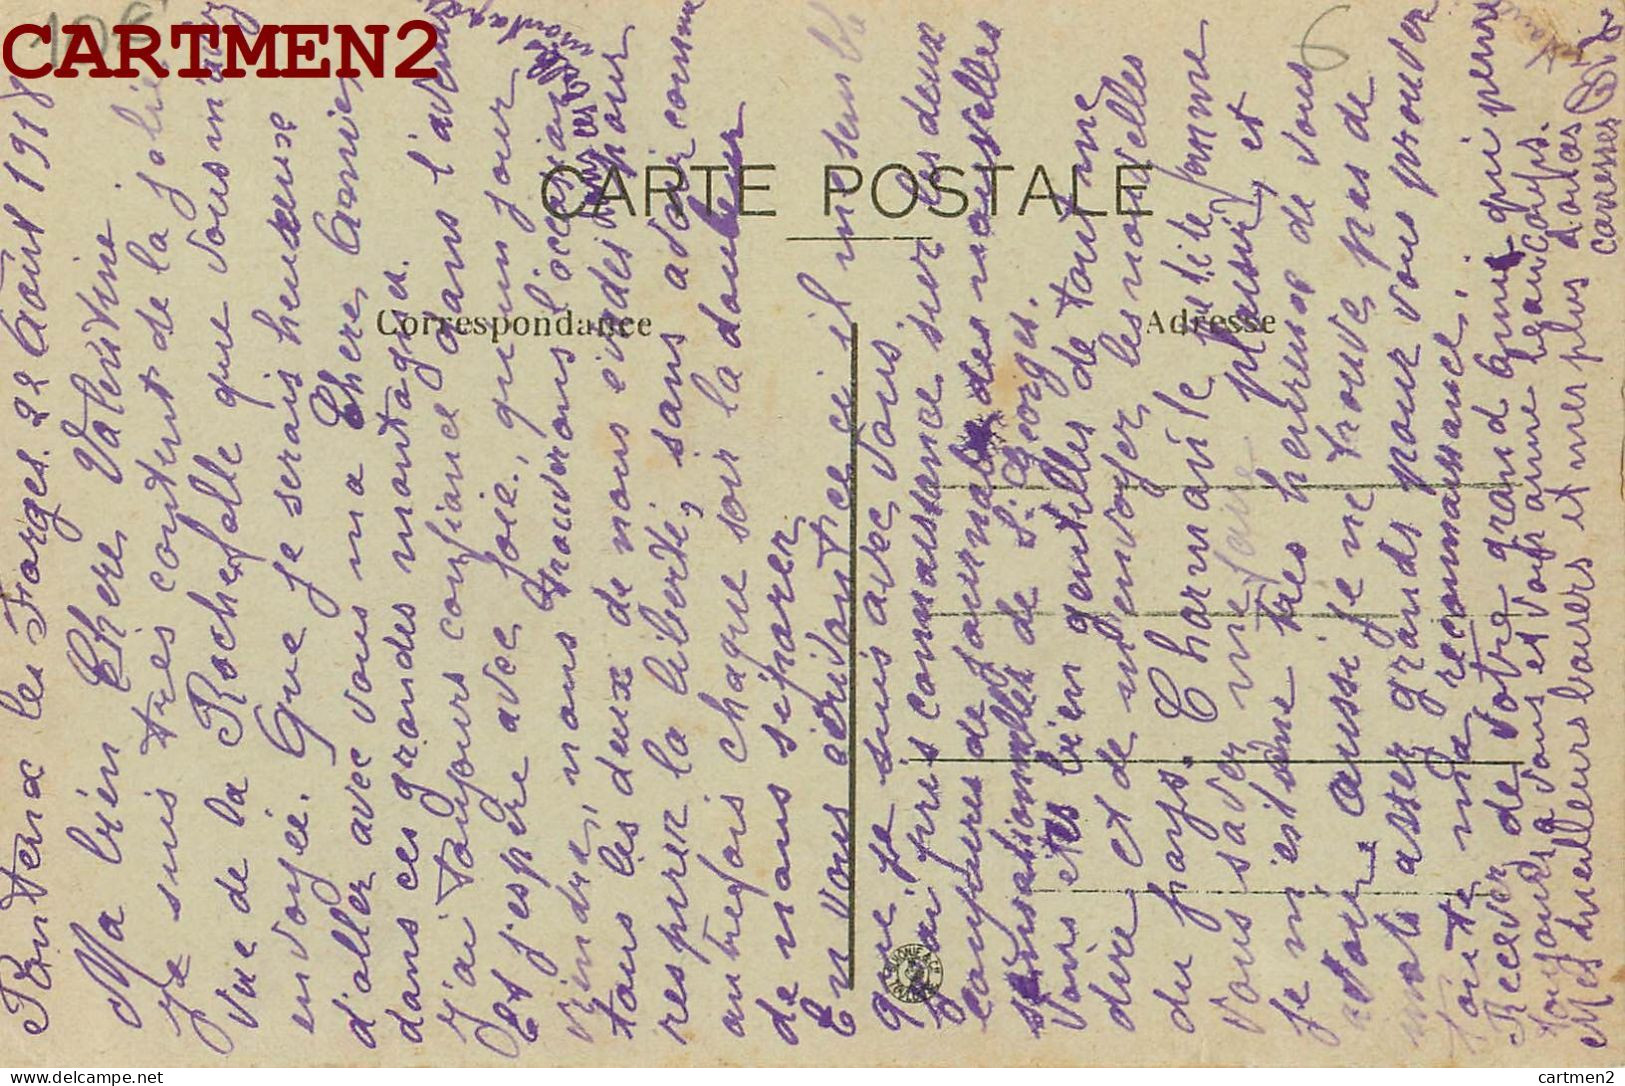 CARTMEN2
6
CARTE POSTALE
Correspondance
Adresse
les Forges. 22 Août 1918
Ma bien Chère Valentine
Je suis très content de la jolie
vue de la Rochefolle que vous m'avez
envoyée. Que je serais heureux
d'aller avec vous ma Chère Amie,
dans ces grandes montagnes.
J'ai toujours confiance dans l'avenir
Et j'espère avec joie, qu'un jour
viendra, nous trouverons l'occasion
tous les deux de nous évader pour
respirer la liberté, sans avoir comme
autrefois chaque soir la douleur
de nous séparer
En vous écrivant ce ci il me semble
que je suis avec vous
J'ai pris connaissance sur les deux
coupures de journal des nouvelles
sensationnelles de St. Georges.
Vous êtes bien gentilles de tout me
dire et de m'envoyer les nouvelles
du pays. Charmante petite femme
vous savez me faire plaisir, et
je m'estime très heureux de vous
avoir aussi je ne trouve pas de
mots assez grands pour vous prouver
toute ma reconnaissance.
Recevez de votre grand Ami qui pense
toujours à vous et vous aime beaucoup.
Mes meilleurs baisers et mes plus douces
caresses
cartmen2
cartmen2